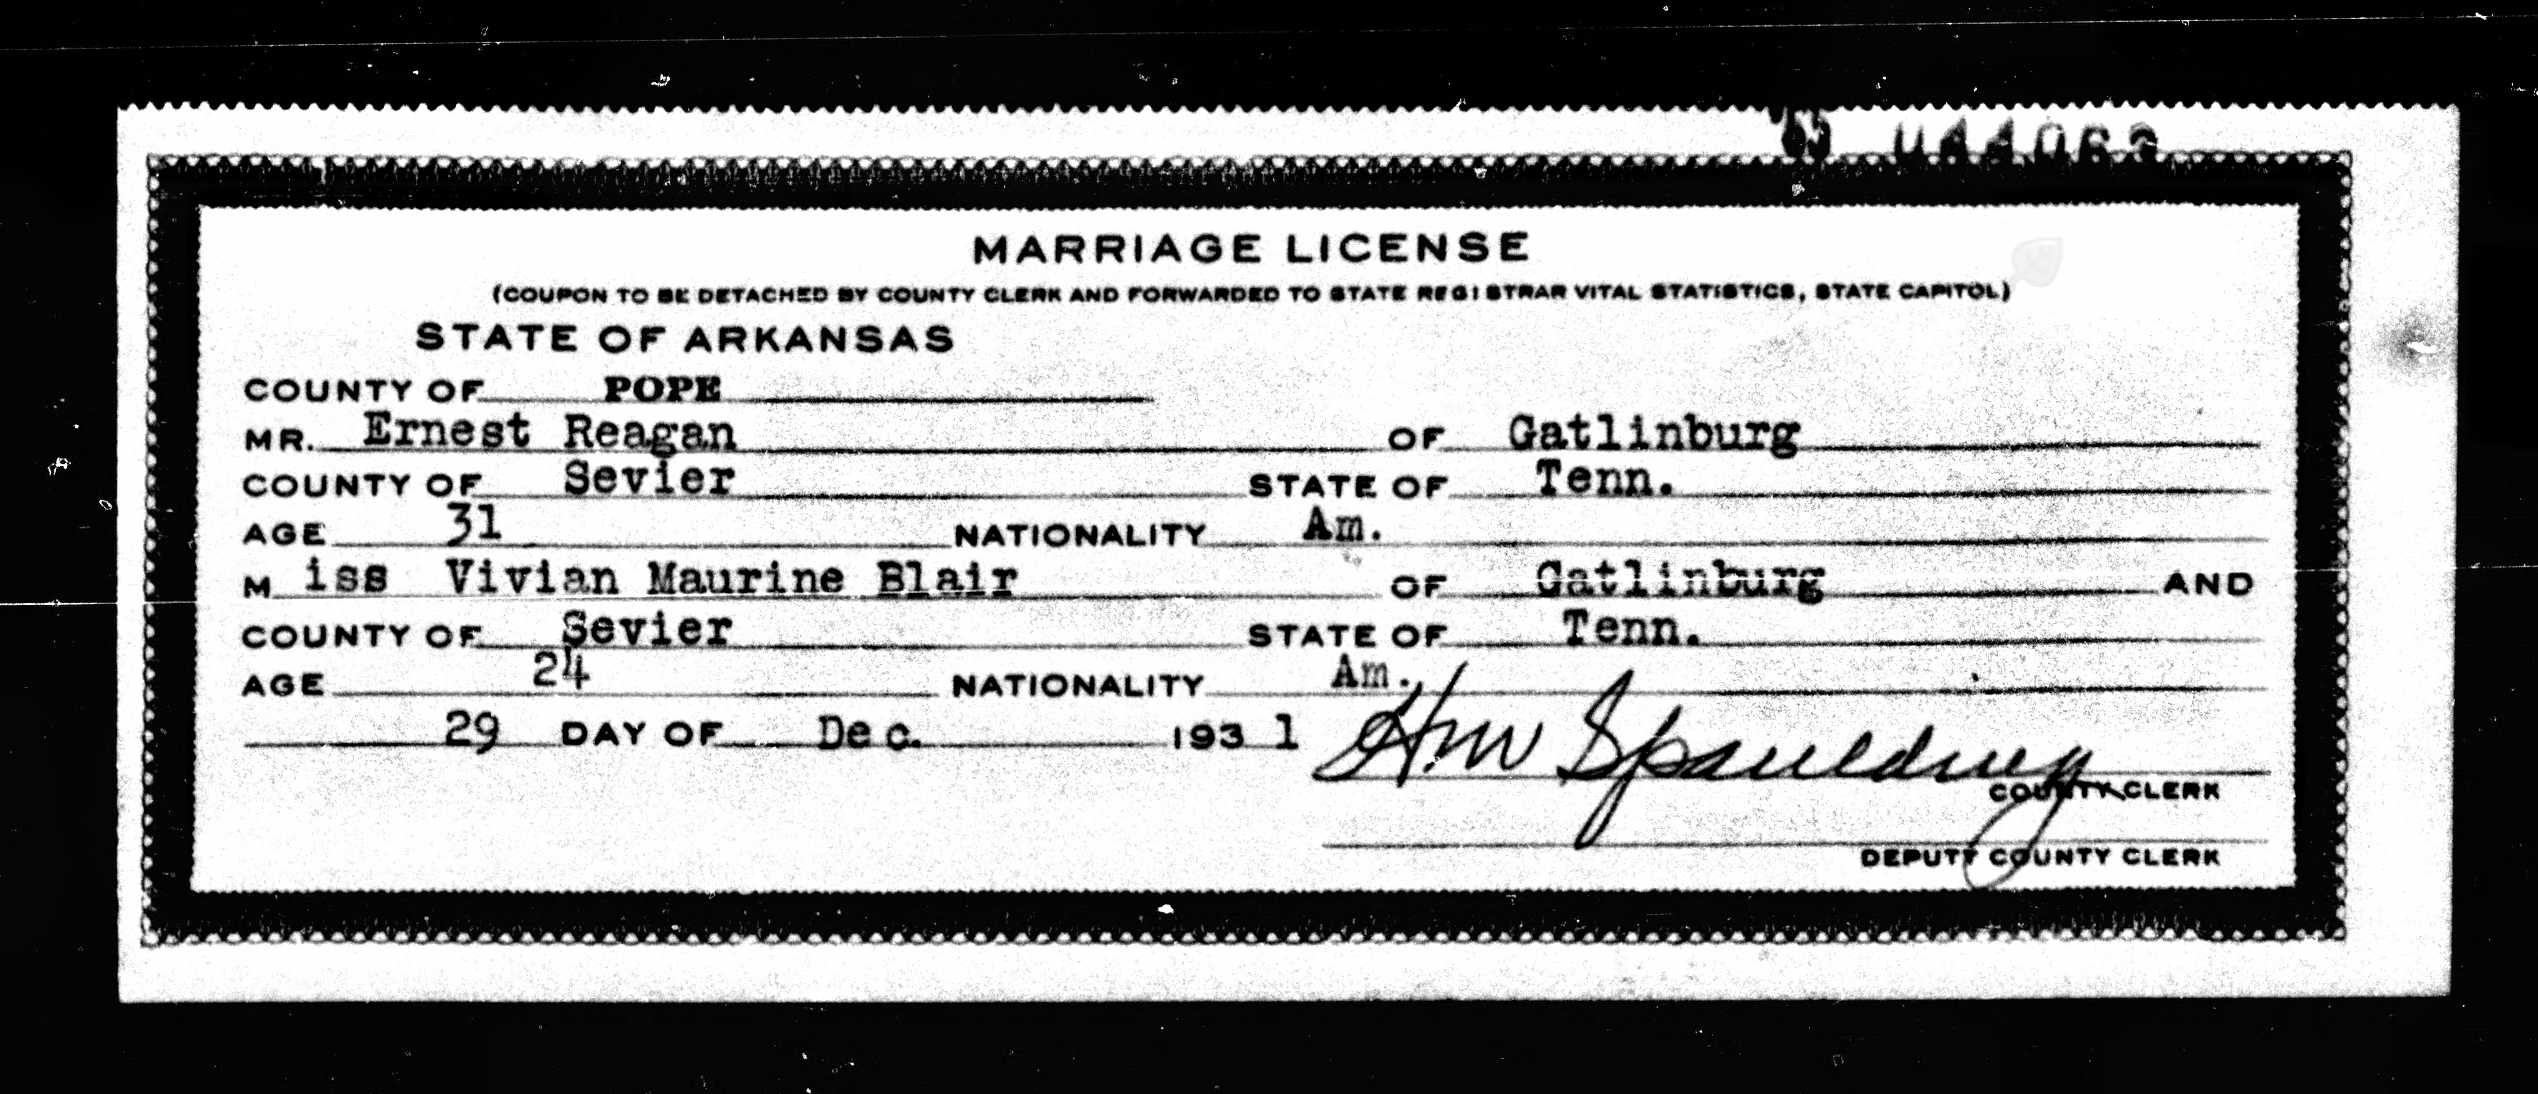 MARRIAGE LICENSE
(COUPON TO BE DETACHED BY COUNTY CLERK AND FORWARDED TO STATE REGISTRAR VITAL STATISTICS, STATE CAPITOL)
STATE OF ARKANSAS
COUNTY OF POPE
MR. Ernest Reagan OF Gatlinburg
COUNTY OF Sevier STATE OF Tenn.
AGE 31 NATIONALITY Am.
Miss Vivian Maurine Blair OF Gatlinburg AND
COUNTY OF Sevier STATE OF Tenn.
AGE 24 NATIONALITY Am.
29 DAY OF Dec. 1931 Spaulding
COUNTY CLERK
DEPUTY COUNTY CLERK